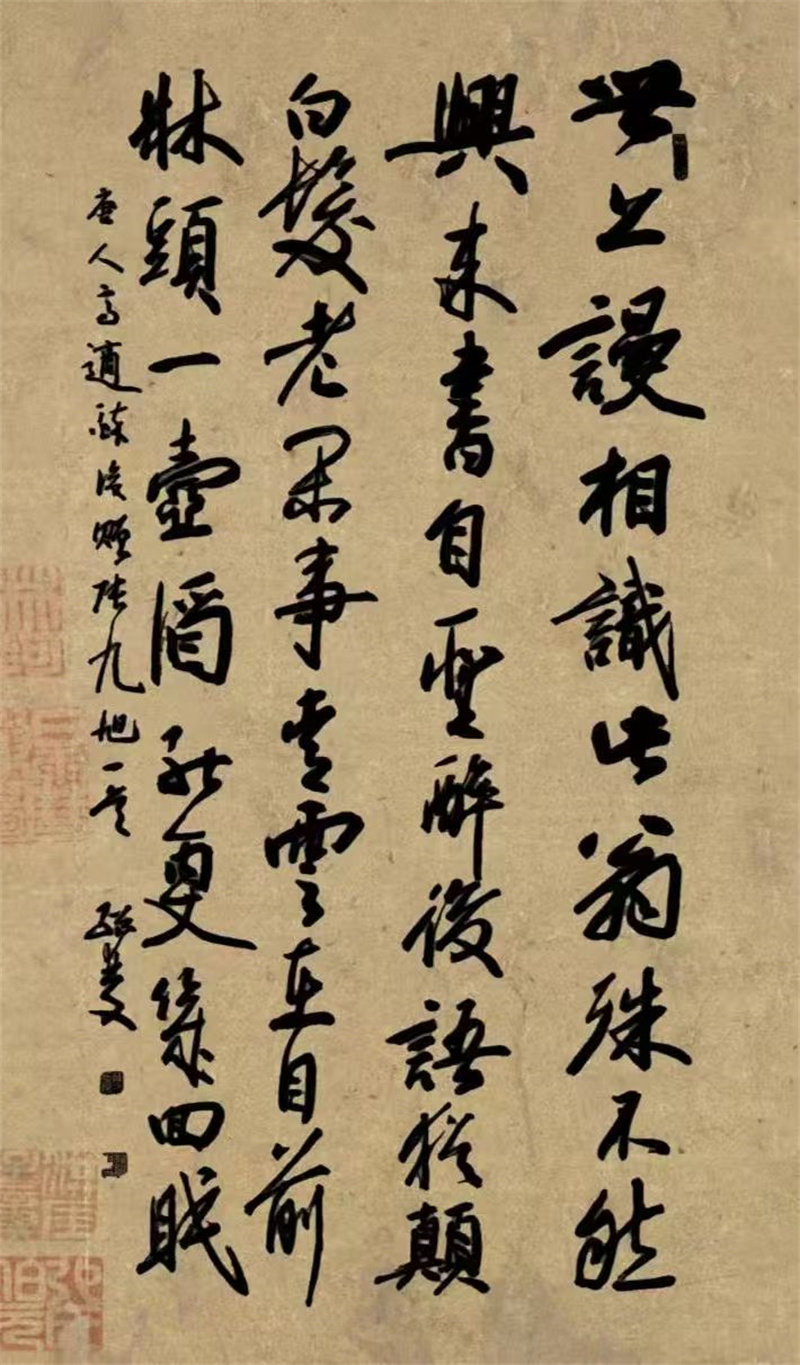 世上謾相識此翁殊不然
興來書自聖醉後語猶顛
白髮老閑事青雲在目前
牀頭一壺酒能更幾回眠
唐人高適醉後贈張九旭一首